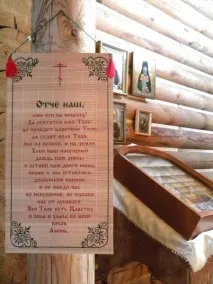 Отче наш,
иже еси на небеси!
Да святится имя Твое,
да приидет царствие Твое,
да будет воля Твоя,
яко на небеси и на земли.
Хлеб наш насущный
даждь нам днесь;
и остави нам долги наша,
якоже и мы оставляем
должником нашим;
и не введи нас
во искушение, но избави
нас от лукаваго.
Яко Твое есть Царство
и сила и слава во веки
веков.
Аминь.